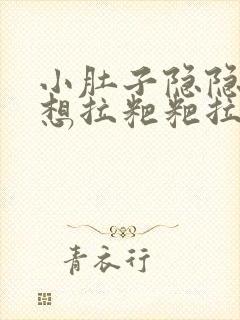 小肚子隐隐
想拉粑粑拉
青衣行